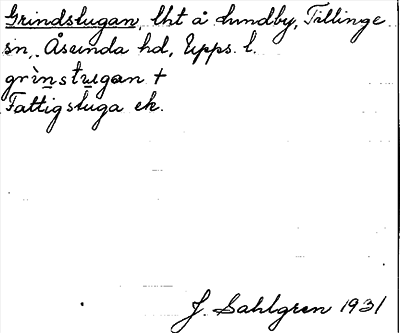 Grindstugan, lht å Lundby, Tillinge
sn, Åsunda hd, Upps. l.
grinstugan †
Fattigstuga ek.
J. Sahlgren 1931